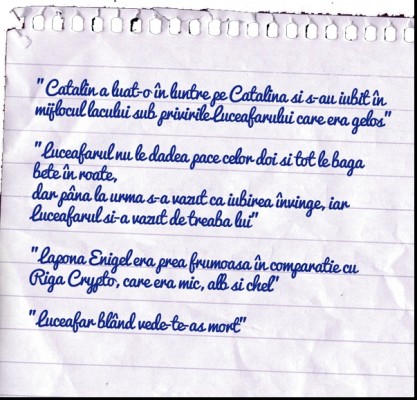 "Catalin a luat-o în luntre pe Catalina si s-au iubit în
mijlocul lacului sub privirile Luceafarului care era gelos"
"Luceafarul nu le dadea pace celor doi si tot le baga
bete în roate,
dar pâna la urma s-a vazut ca iubirea învinge, iar
Luceafarul si-a vazut de treaba lui"
"Lapona Enigel era prea frumoasa în comparatie cu
Riga Crypto, care era mic, alb si chel"
"Luceafar blând vede-te-as mort"